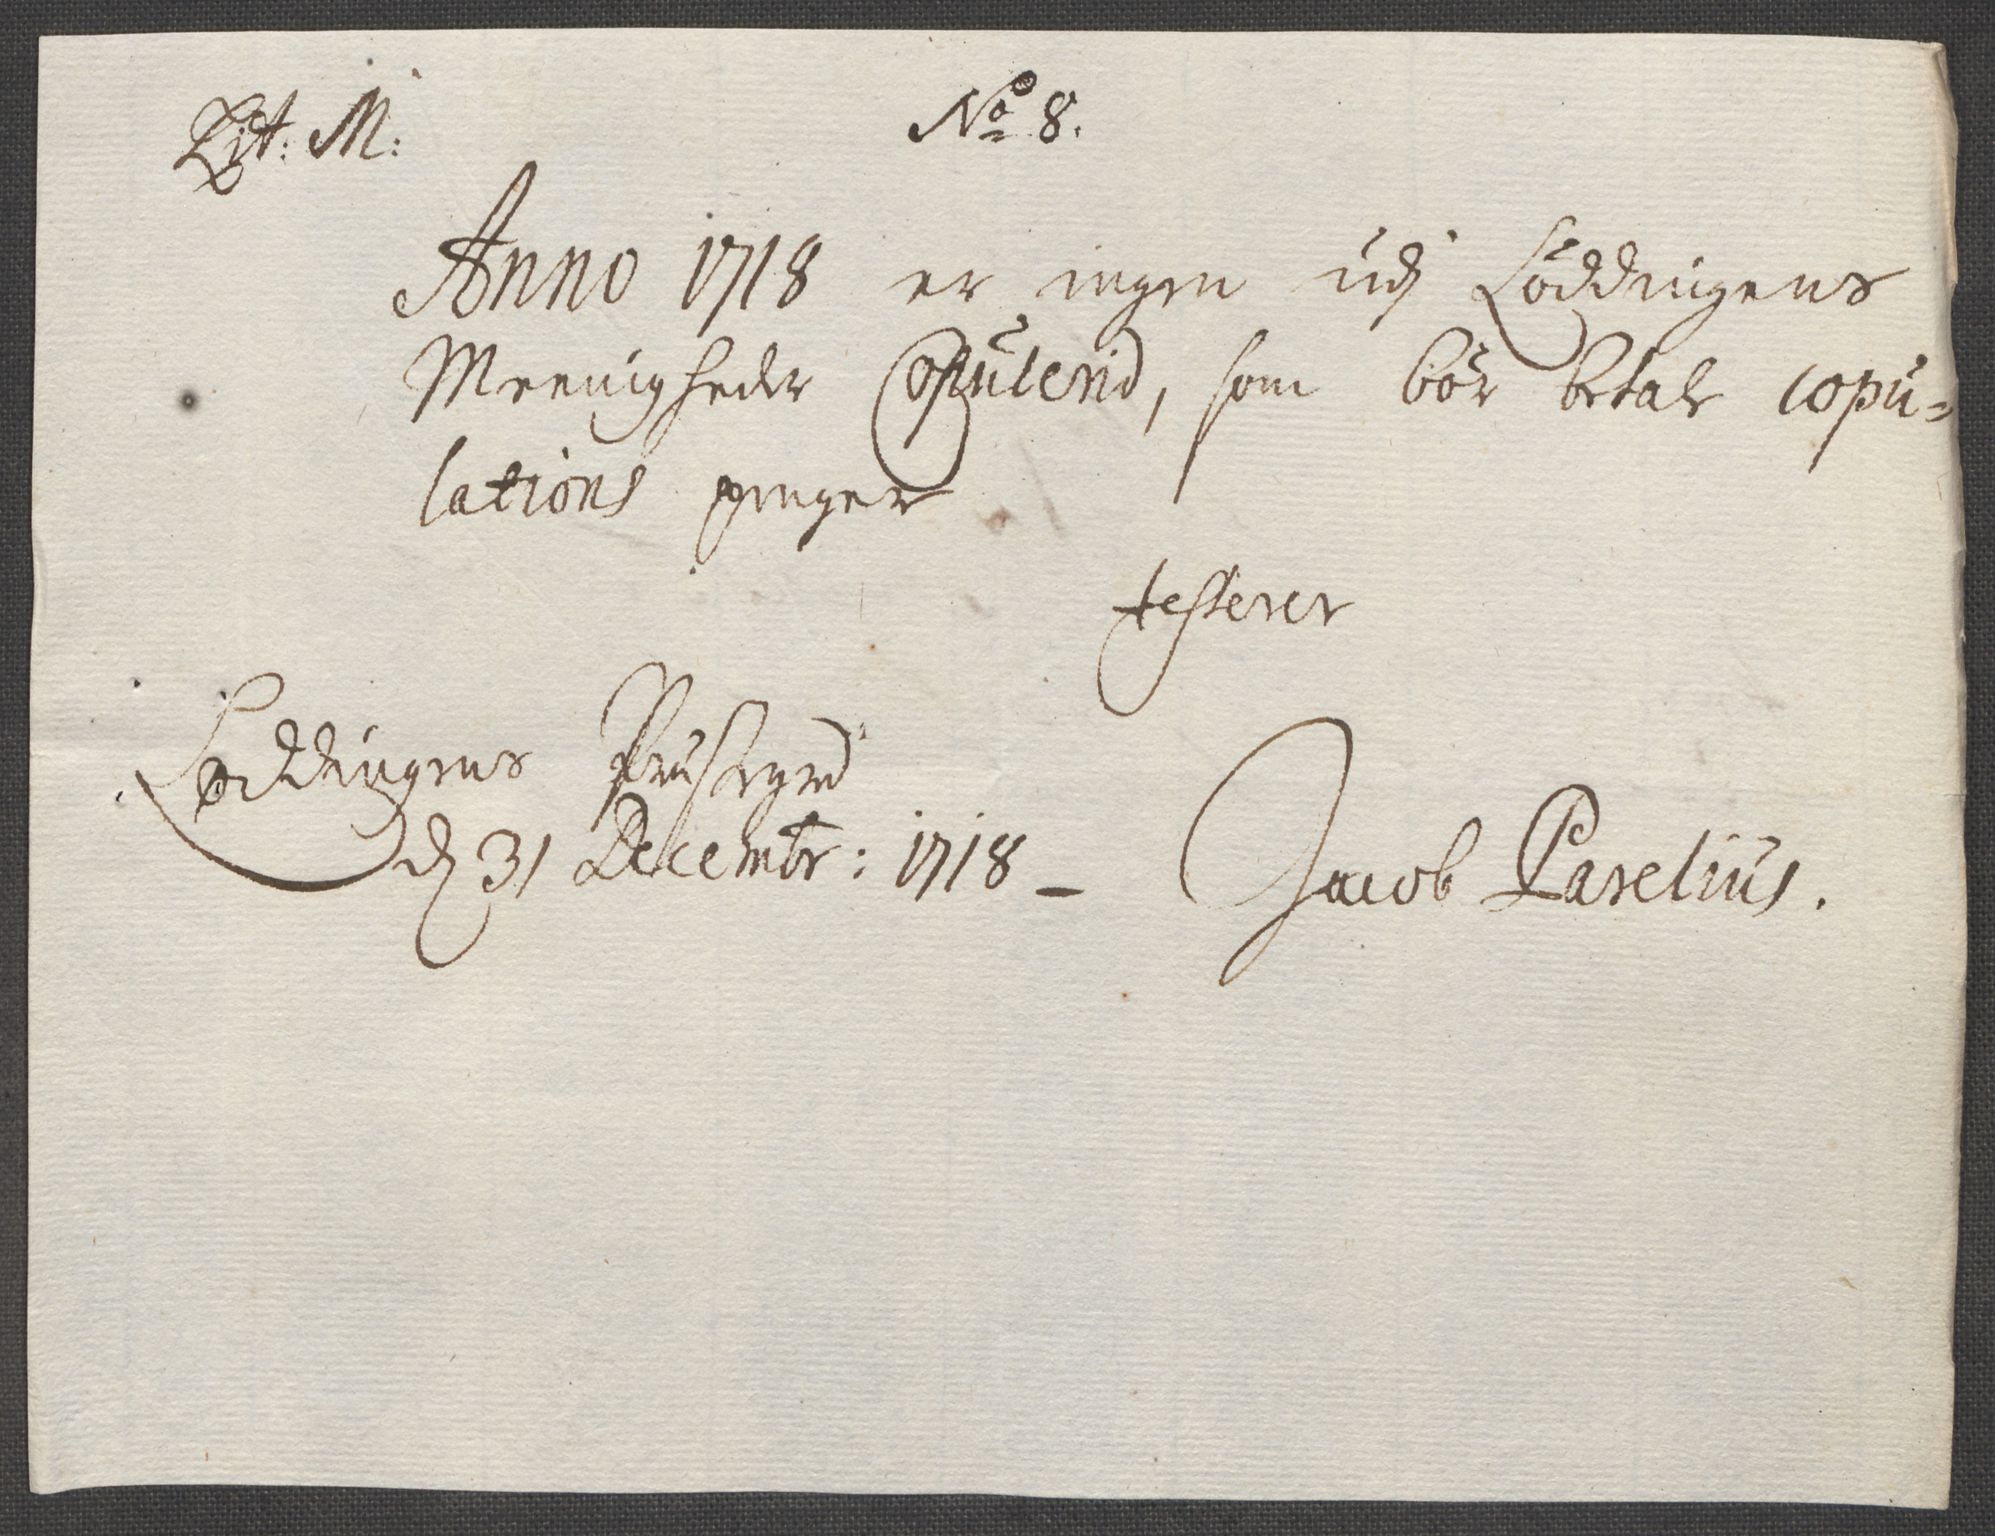 Lit: M:
No 8.
Anno 1718 er ingen udj Löddingens
Meenigheder Copulerid, som bör betale copu=
lations penger
testerer
Löddingens Præstegrd
d 31 Decembr: 1718 –
Jacob Parelius.